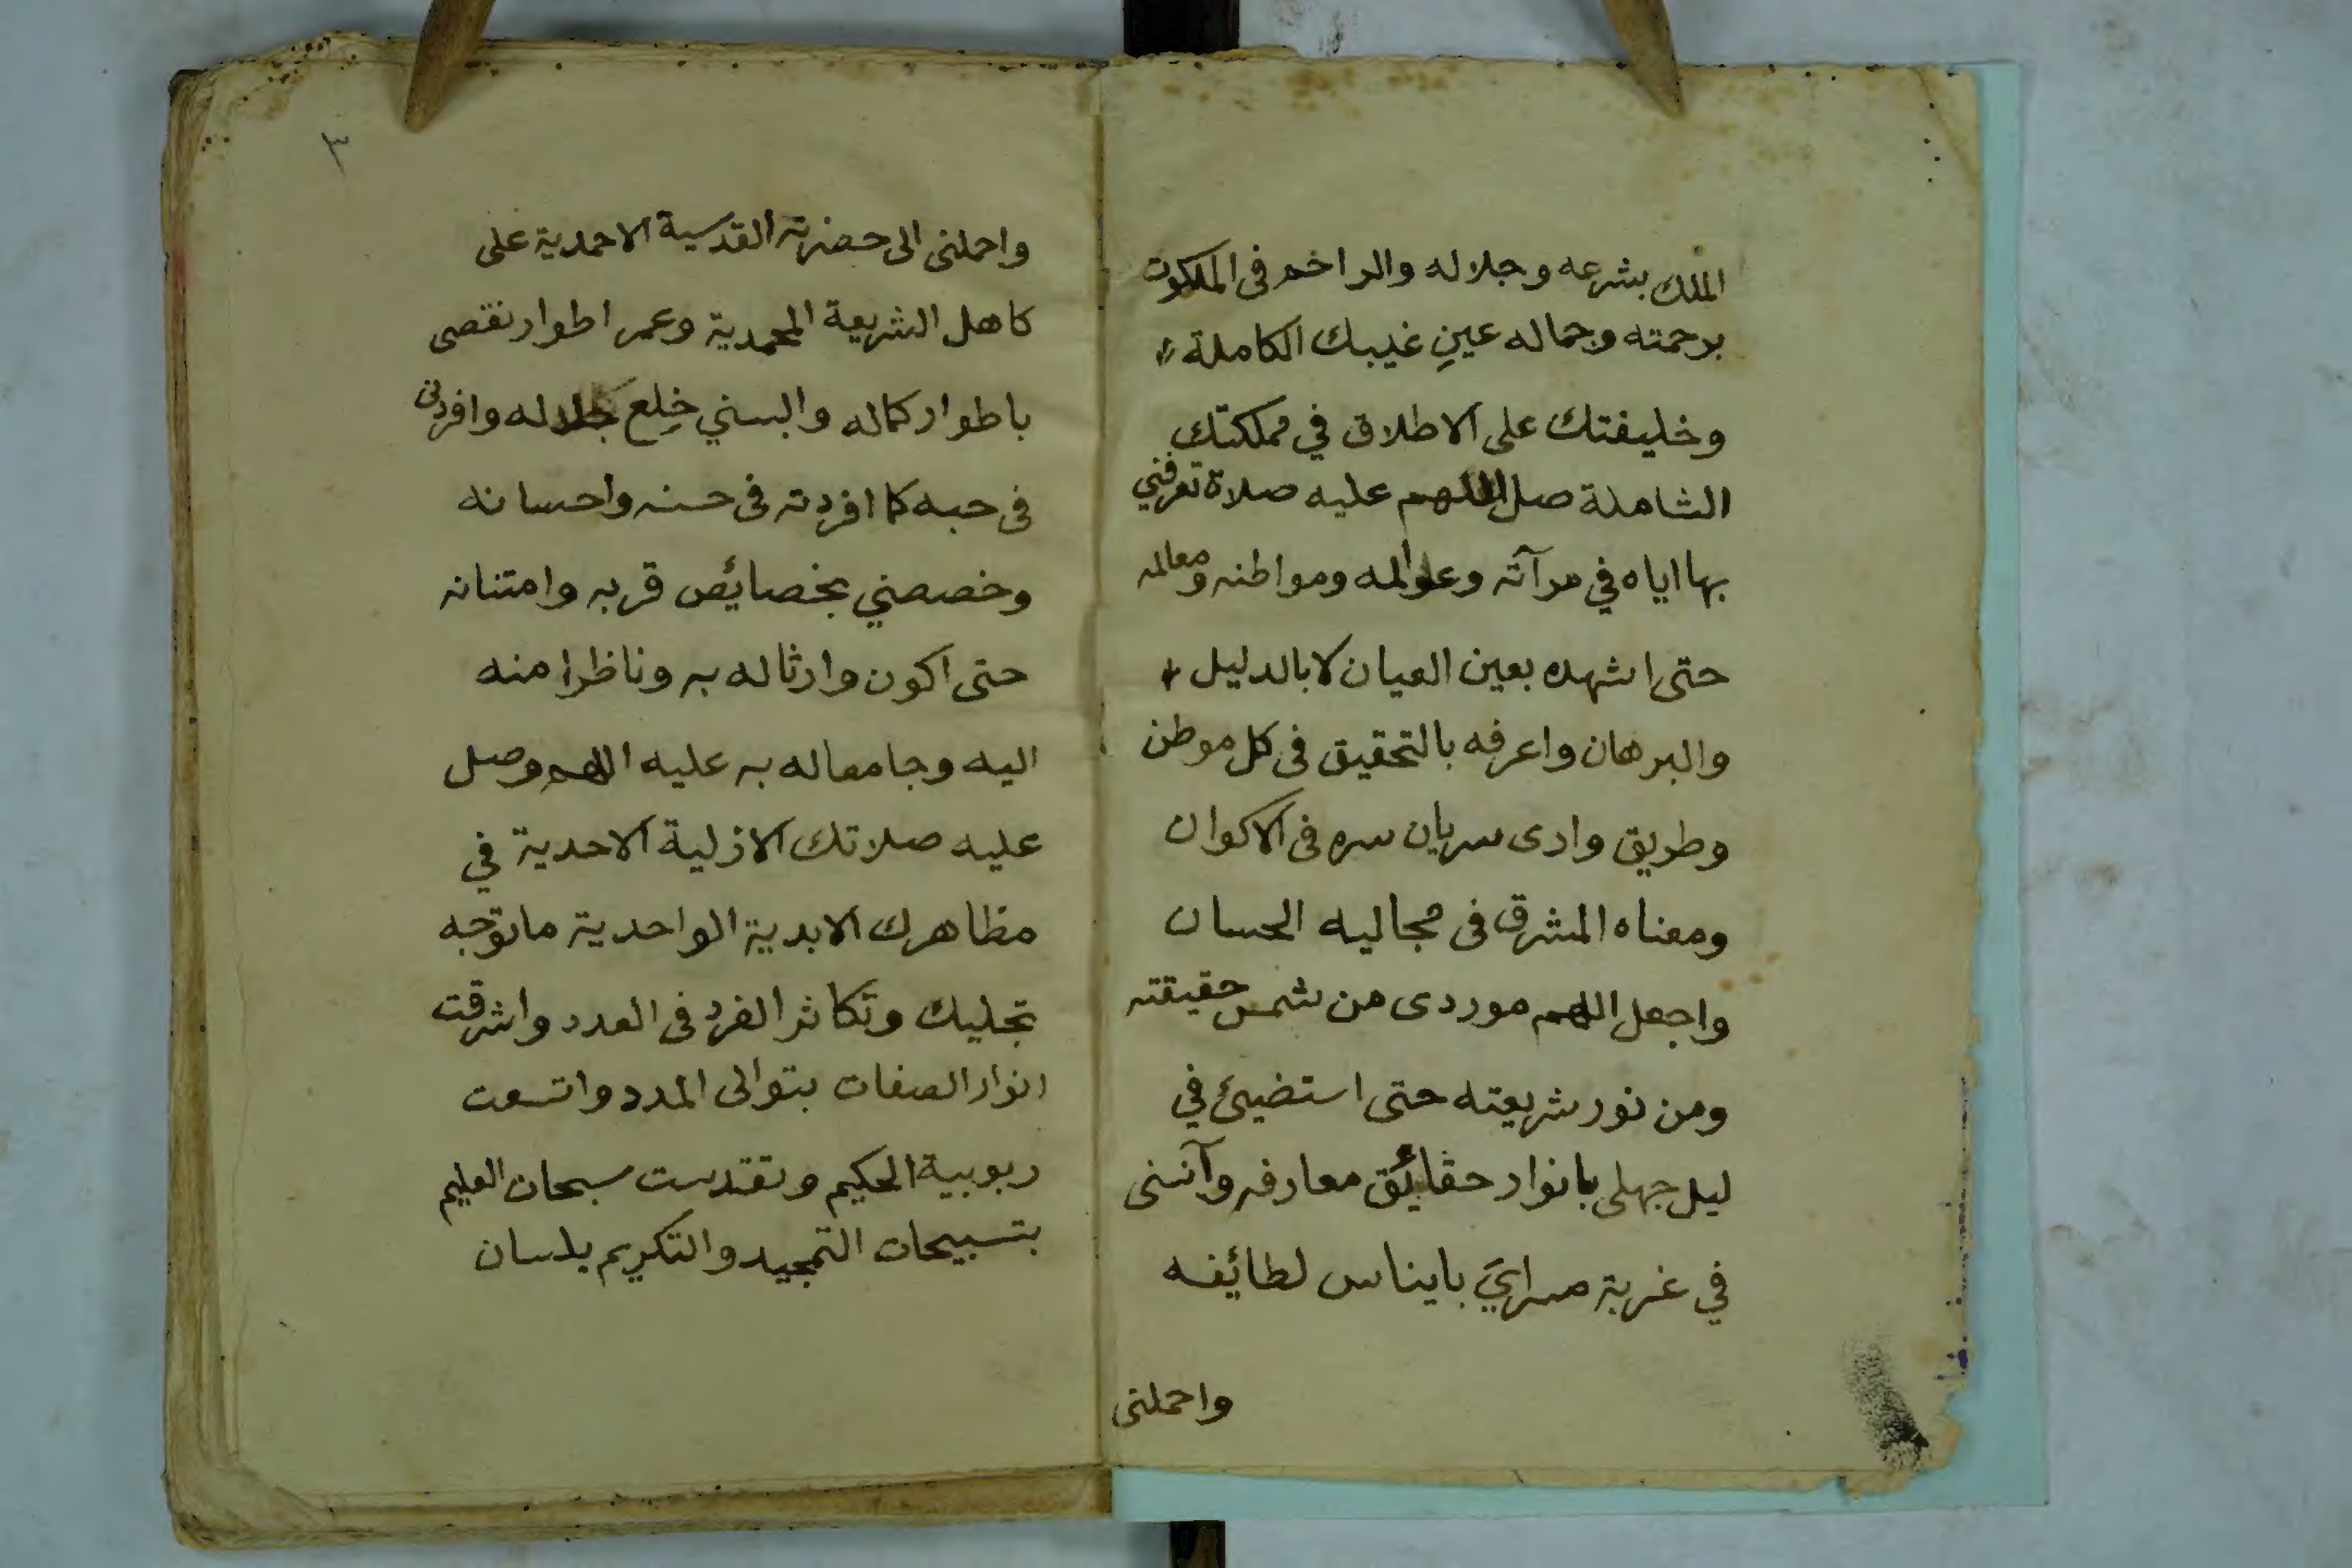 الملك بشرعه وجلاله والراخم فى الملكوت
برحمته وجماله عينِ غيبك الكاملة
وخليفتك على الاطلاق في مملكتك
الشاملة صل اللهم عليه صلاة تعرفني
بها اياه في مرآته وعوالمه ومواطنه ومعالمه
حتى اشهده بعين العيان لا بالدليل
والبرهان واعرفه بالتحقيق فى كل موطن
وطريق وارى سريان سره فى الاكوان
ومعناه المشرق فى مجاليه الحسان
واجعل اللهم موردى من شمس حقيقته
ومن نور شريعته حتى استضيئ في
ليل جهلى بانوار حقائق معارفه وآنسنى
في غربة مسرايَ بايناس لطائفه
واحملنى
٣
واحملنى الى حضرته القدسية الاحمدية على
كاهل الشريعة المحمدية وعمر اطوار نقصى
باطوار كماله والبسني خِلع جلاله وافردنى
فى حبه كما افردته فى حسنه واحسانه
وخصصني بخصائص قربه وامتنانه
حتى اكون وارثا له به وناظرا منه
اليه وجامعا له به عليه اللهم وصل
عليه صلاتك الازلية الاحدية في
مظاهرك الابدية الواحدية ما توجه
تجليك وتكاثر الفرد فى العدد واشرقت
انوار الصفات بتوالى المدد واتسعت
ربوبية الحكيم وتقدست سبحان العليم
بتسبيحات التمجيد والتكريم بلسان